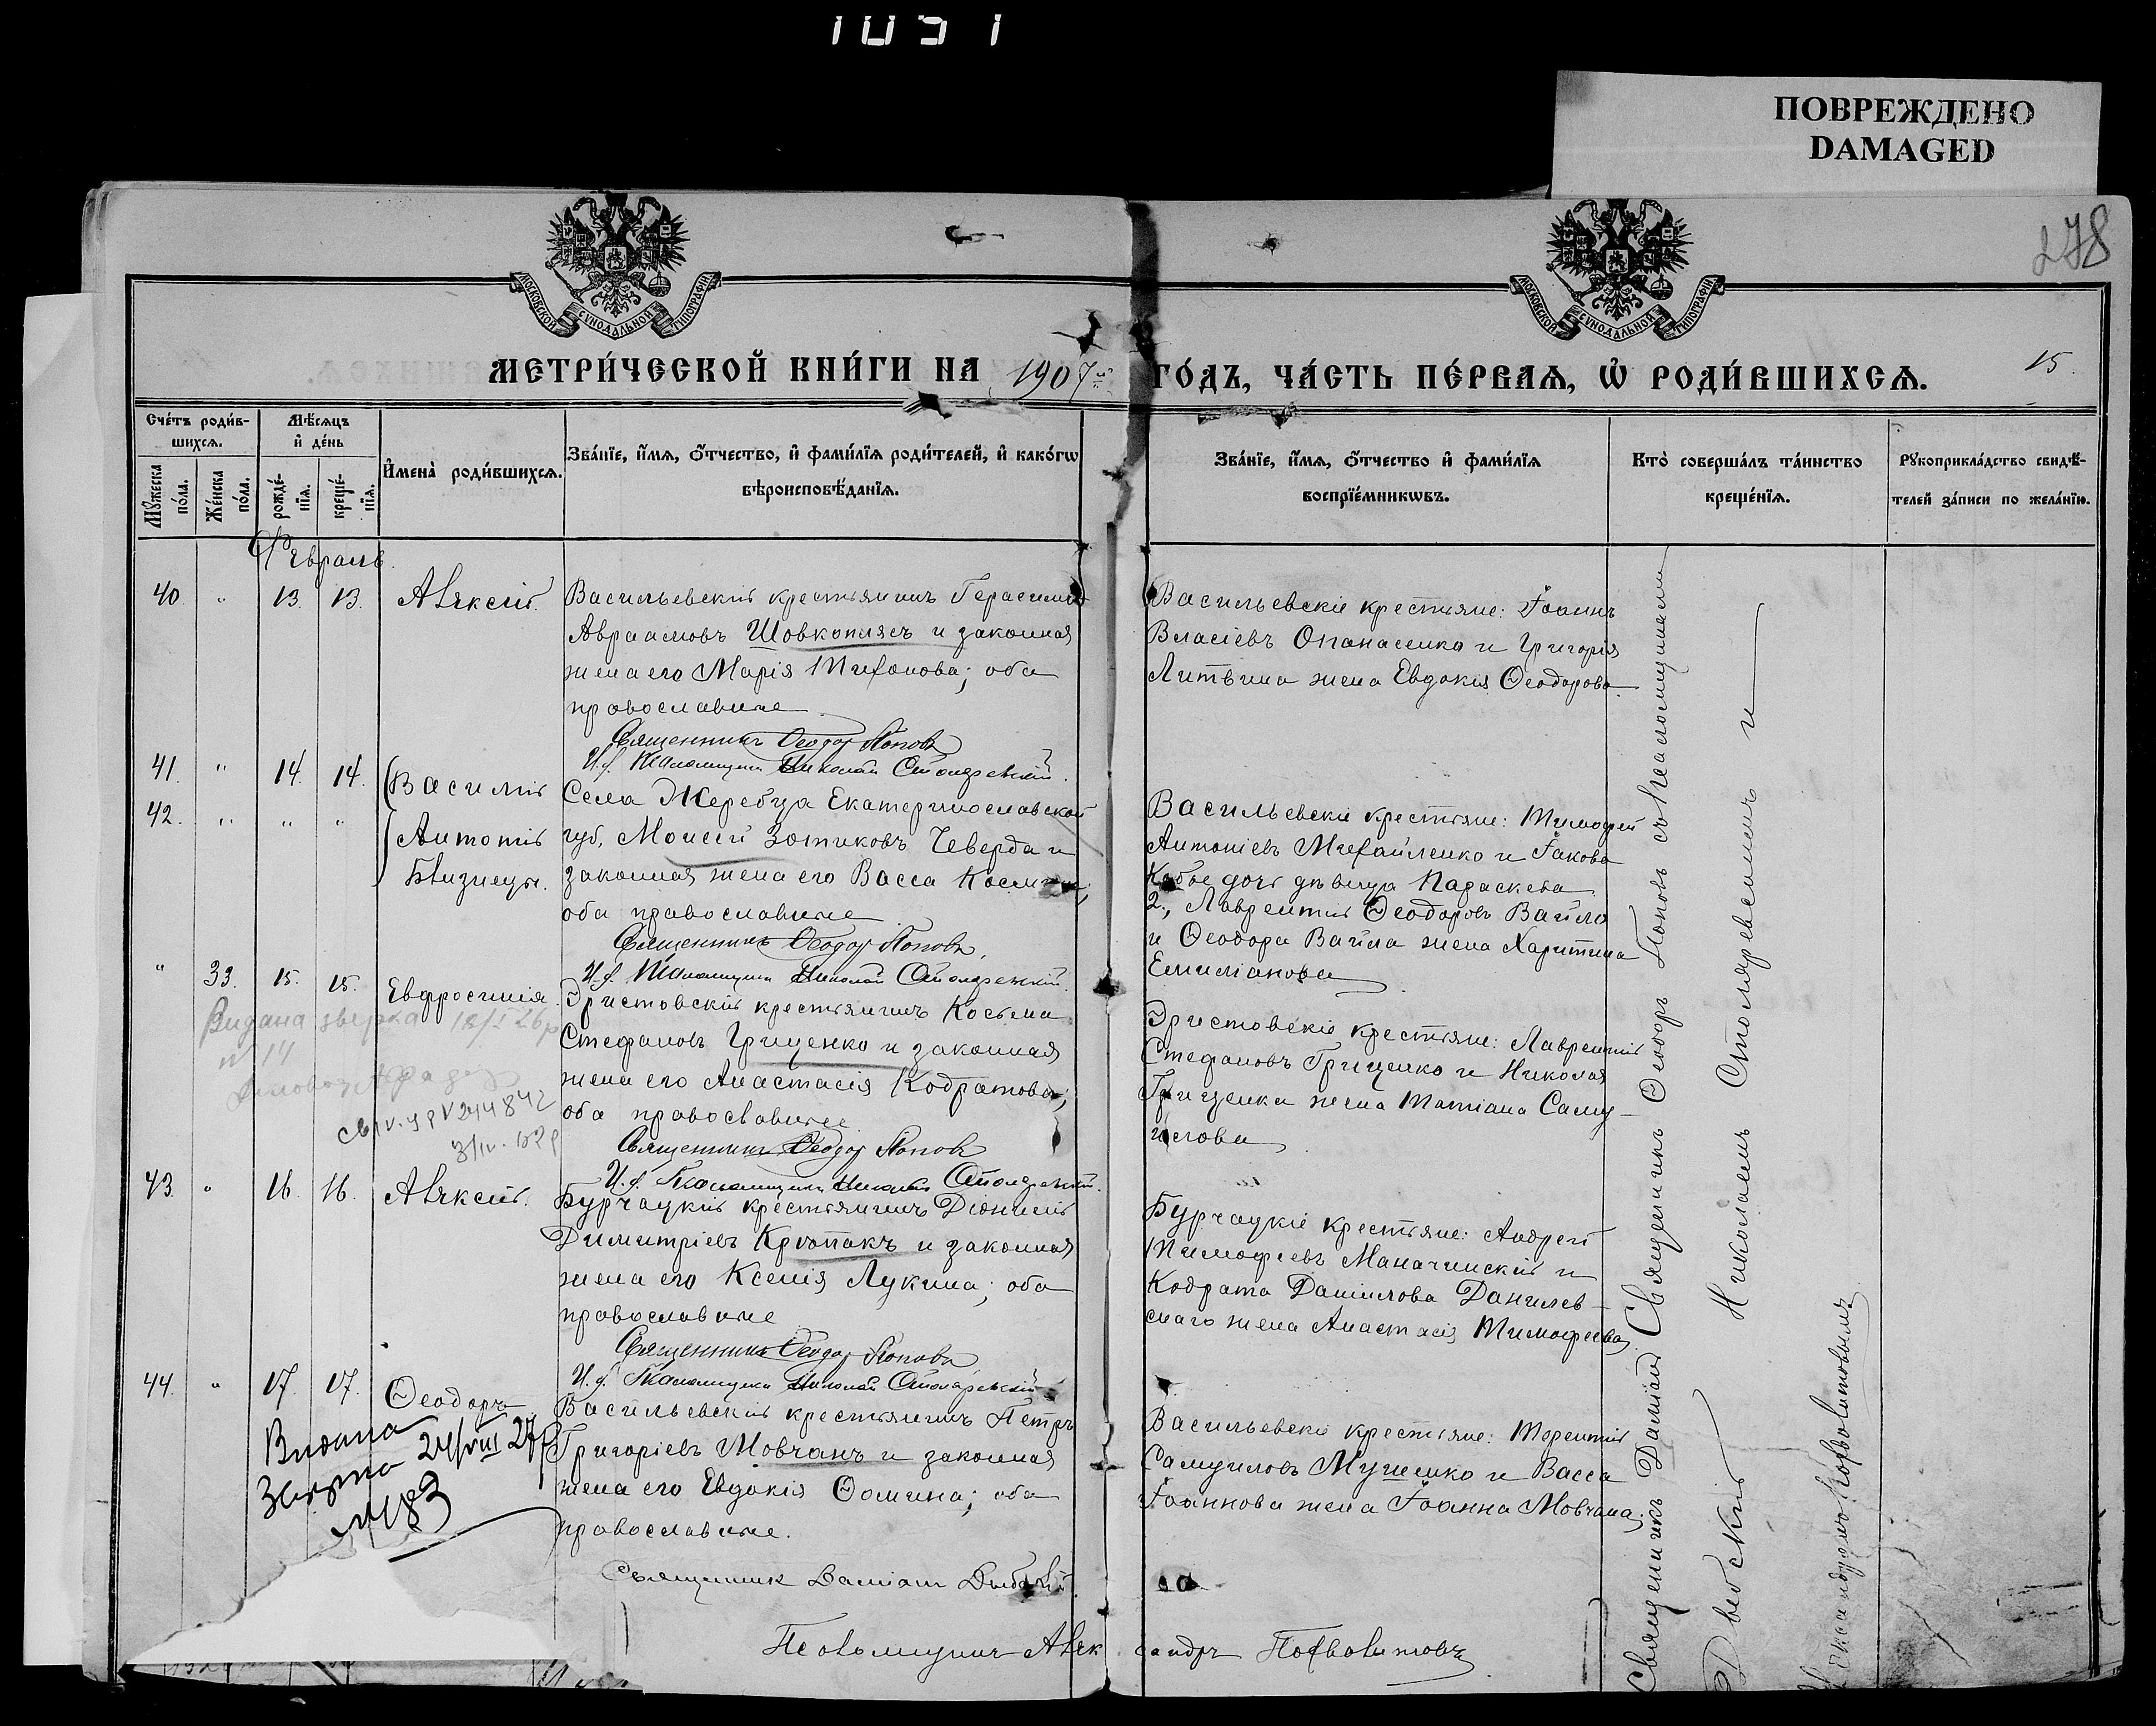 1051
ПОВРЕЖДЕНО
DAMAGED
278
МОСКОВСКОЙ СѴНОДАЛЬНОЙ ТИПОГРАФІИ
МОСКОВСКОЙ СѴНОДАЛЬНОЙ ТИПОГРАФІИ
МЕТРИ́ЧЕСКОЙ КНИ́ГИ НА 1907й ГО́ДЪ, ЧА́СТЬ ПЕ́РВАѦ, Ѡ҆ РОДИ́ВШИХСѦ.
15.
Сче́тъ роди́в-
шихсѧ.
Мѣ́сѧцъ
и҆ де́нь
Мꙋ́жеска
по́ла.
Же́нска
по́ла.
рожде́-
нїѧ.
креще́-
нїѧ.
И҆мена̀ роди́вшихсѧ.
Зва́нїе, и҆́мѧ, ѻ҆́тчество, и҆ фами́лїѧ роди́телей, и҆ како́гѡ
вѣроисповѣ́данїѧ.
Зва́нїе, и҆́мѧ, ѻ҆́тчество и҆ фами́лїѧ
воспрїе́мникѡвъ.
Кто̀ соверша́лъ та́инство
креще́нїѧ.
Рꙋкоприкла́дство свидѣ́-
телей за́писи по жела́нїю.
Февраль.
40. " 13. 13. Алексій.
Васильевскій крестьянинъ Герасимъ
Авраамовъ Шовкоплясъ и законная
жена его Марія Тихонова; оба
православные
Священникъ Ѳеодоръ Поповъ
И.д. Псаломщика Николай Столяревскій.
Васильевскіе крестьяне: Іоаннъ
Власіевъ Опанасенко и Григорія
Литвина жена Евдокія Ѳеодорова.
41. " 14. 14. Василій
42. " " " Антоній
Близнецы.
Села Жеребца Екатеринославской
губ. Моисей Зотиковъ Чеверда и
законная жена его Васса Косьмина;
оба православные
Священникъ Ѳеодоръ Поповъ,
И.д. Псаломщика Николай Столяревскій.
Васильевскіе крестьяне: Тимофей
Антоніевъ Михайленко и Іакова
дочь дѣвица Параскева
2., Лаврентій Ѳеодоровъ Вайло
и Ѳеодора Вайла жена Харитина
Емиліанова
" 33. 15. 15. Евфросинія.
Эристовскій крестьянинъ Косьма
Стефановъ Гриценко и законная
жена его Анастасія Кодратова;
оба православные
Священникъ Ѳеодоръ Поповъ
И.д. Псаломщика Николай Столяревскій.
Эристовскіе крестьяне: Лаврентій
Стефановъ Гриценко и Николая
Гриценка жена Татіана Саму-
илова
Видана
№ 14
43. " 16. 16. Алексій.
Бурчацкій крестьянинъ Діонисій
Димитріевъ Крюпакъ и законная
жена его Ксенія Лукина; оба
православные
Священникъ Ѳеодоръ Поповъ
И.д. Псаломщика Николай Столяревскій
Бурчацкіе крестьяне: Андрей
Тимофеевъ Маначинскій и
Кодрата Даніилова Данилев-
скаго жена Анастасія Тимофеева.
44. " 17. 17. Ѳеодоръ
Васильевскій крестьянинъ Петръ
Григоріевъ Мовчанъ и законная
жена его Евдокія Ѳомина; оба
православные.
Васильевскіе крестьяне: Терентій
Самуиловъ Мушенко и Васса
Іоаннова жена Іоанна Мовчана.
Видана
24/VIII 27 р
№ 183
Священникъ Даміанъ
Псаломщикъ Александръ
Священникъ Даміанъ Священникъ Ѳеодоръ Поповъ съ псаломщикомъ
Николаемъ Столяревскимъ и
Александромъ